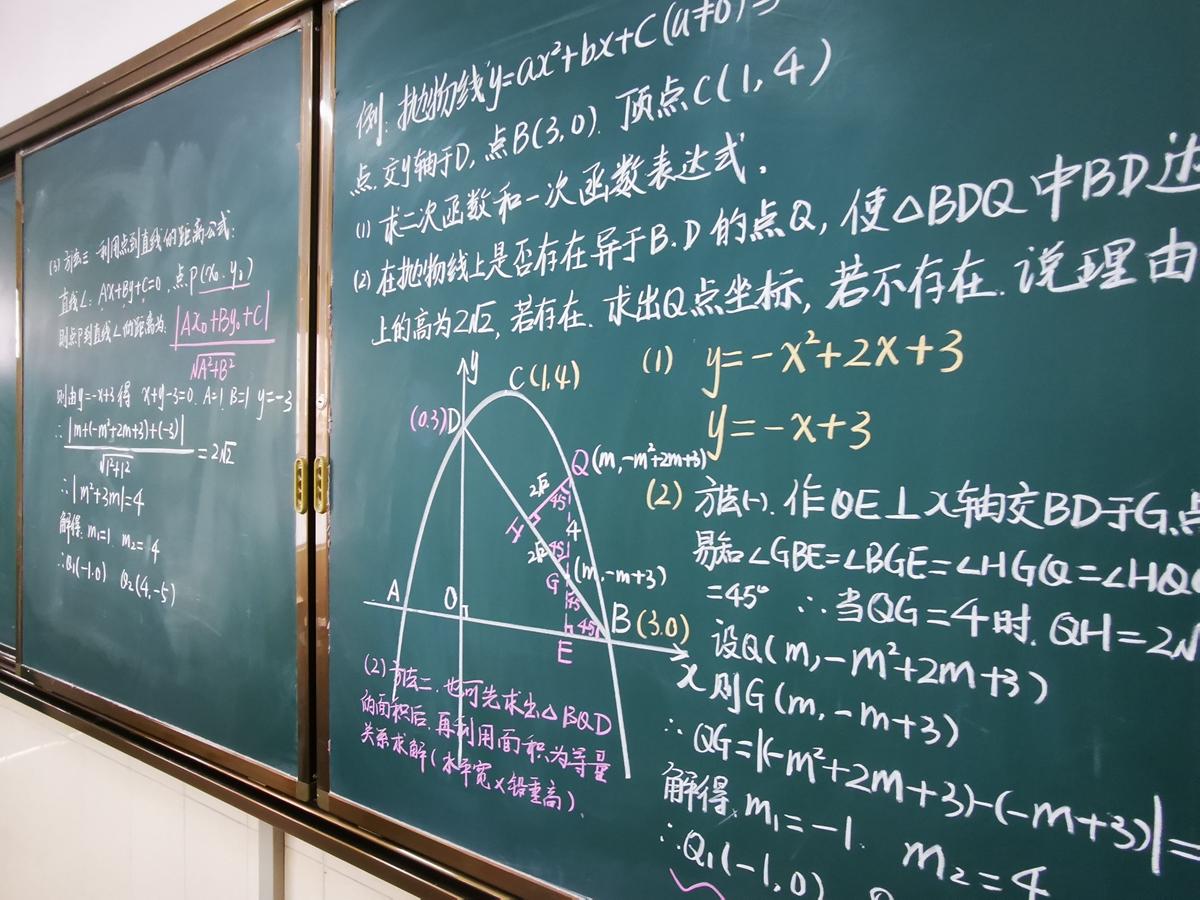 (3) 方法三 利用点到直线的距离公式:
直线L: Ax+By+C=0, 点P(x₀.y₀)
则点P到直线L的距离为: |Ax₀+By₀+C|
√A²+B²
则由y=-x+3得 x+y-3=0. A=1. B=1 y=-3
∴ |m+(-m²+2m+3)+(-3)|
√1²+1² =2√2
∴|m²+3m|=4
解得. m₁=1. m₂=4
∴Q₁(-1.0) Q₂(4,-5)
例: 抛物线y=ax²+bx+C(a≠0)
点.交y轴于D, 点B(3,0). 顶点C(1,4)
(1) 求二次函数和一次函数表达式.
(2) 在抛物线上是否存在异于B.D的点Q, 使△BDQ中BD边
上的高为2√2, 若存在. 求出Q点坐标, 若不存在. 说理由
(1) y=-x²+2x+3
y=-x+3
y
C(1,4)
(0.3)D
Q(m,-m²+2m+3)
2√2
45°
H
4
2√2
45
(m,-m+3)
G
45
A
O
45°
B(3.0)
E
x
(2) 方法(一). 作QE⊥x轴交BD于G.点
易知∠GBE=∠BGE=∠HGQ=∠HQG
=45° ∴当QG=4时. QH=2√
设Q(m,-m²+2m+3)
则G(m,-m+3)
∴QG=|(-m²+2m+3)-(-m+3)|=
解得.m₁=-1. m₂=4
∴Q₁(-1,0)
(2) 方法二. 也可先求出△BQD
的面积后.再利用面积为等量
关系求解(水平宽×铅垂高).